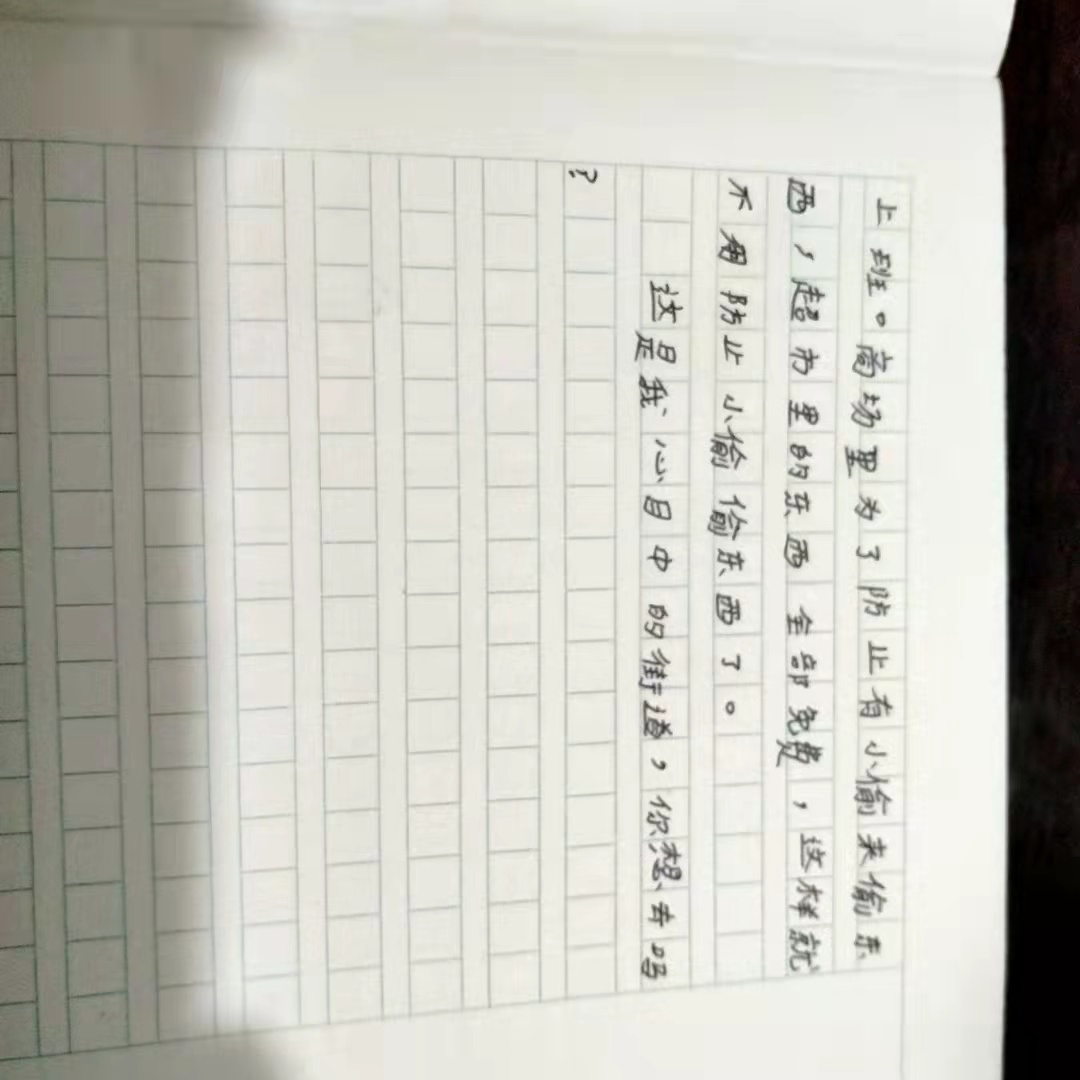 上班。商场里为了防止有小偷来偷东
西，超市里的东西全部免费，这样就
不用防止小偷偷东西了。
这是我心目中的街道，你想去吗
？